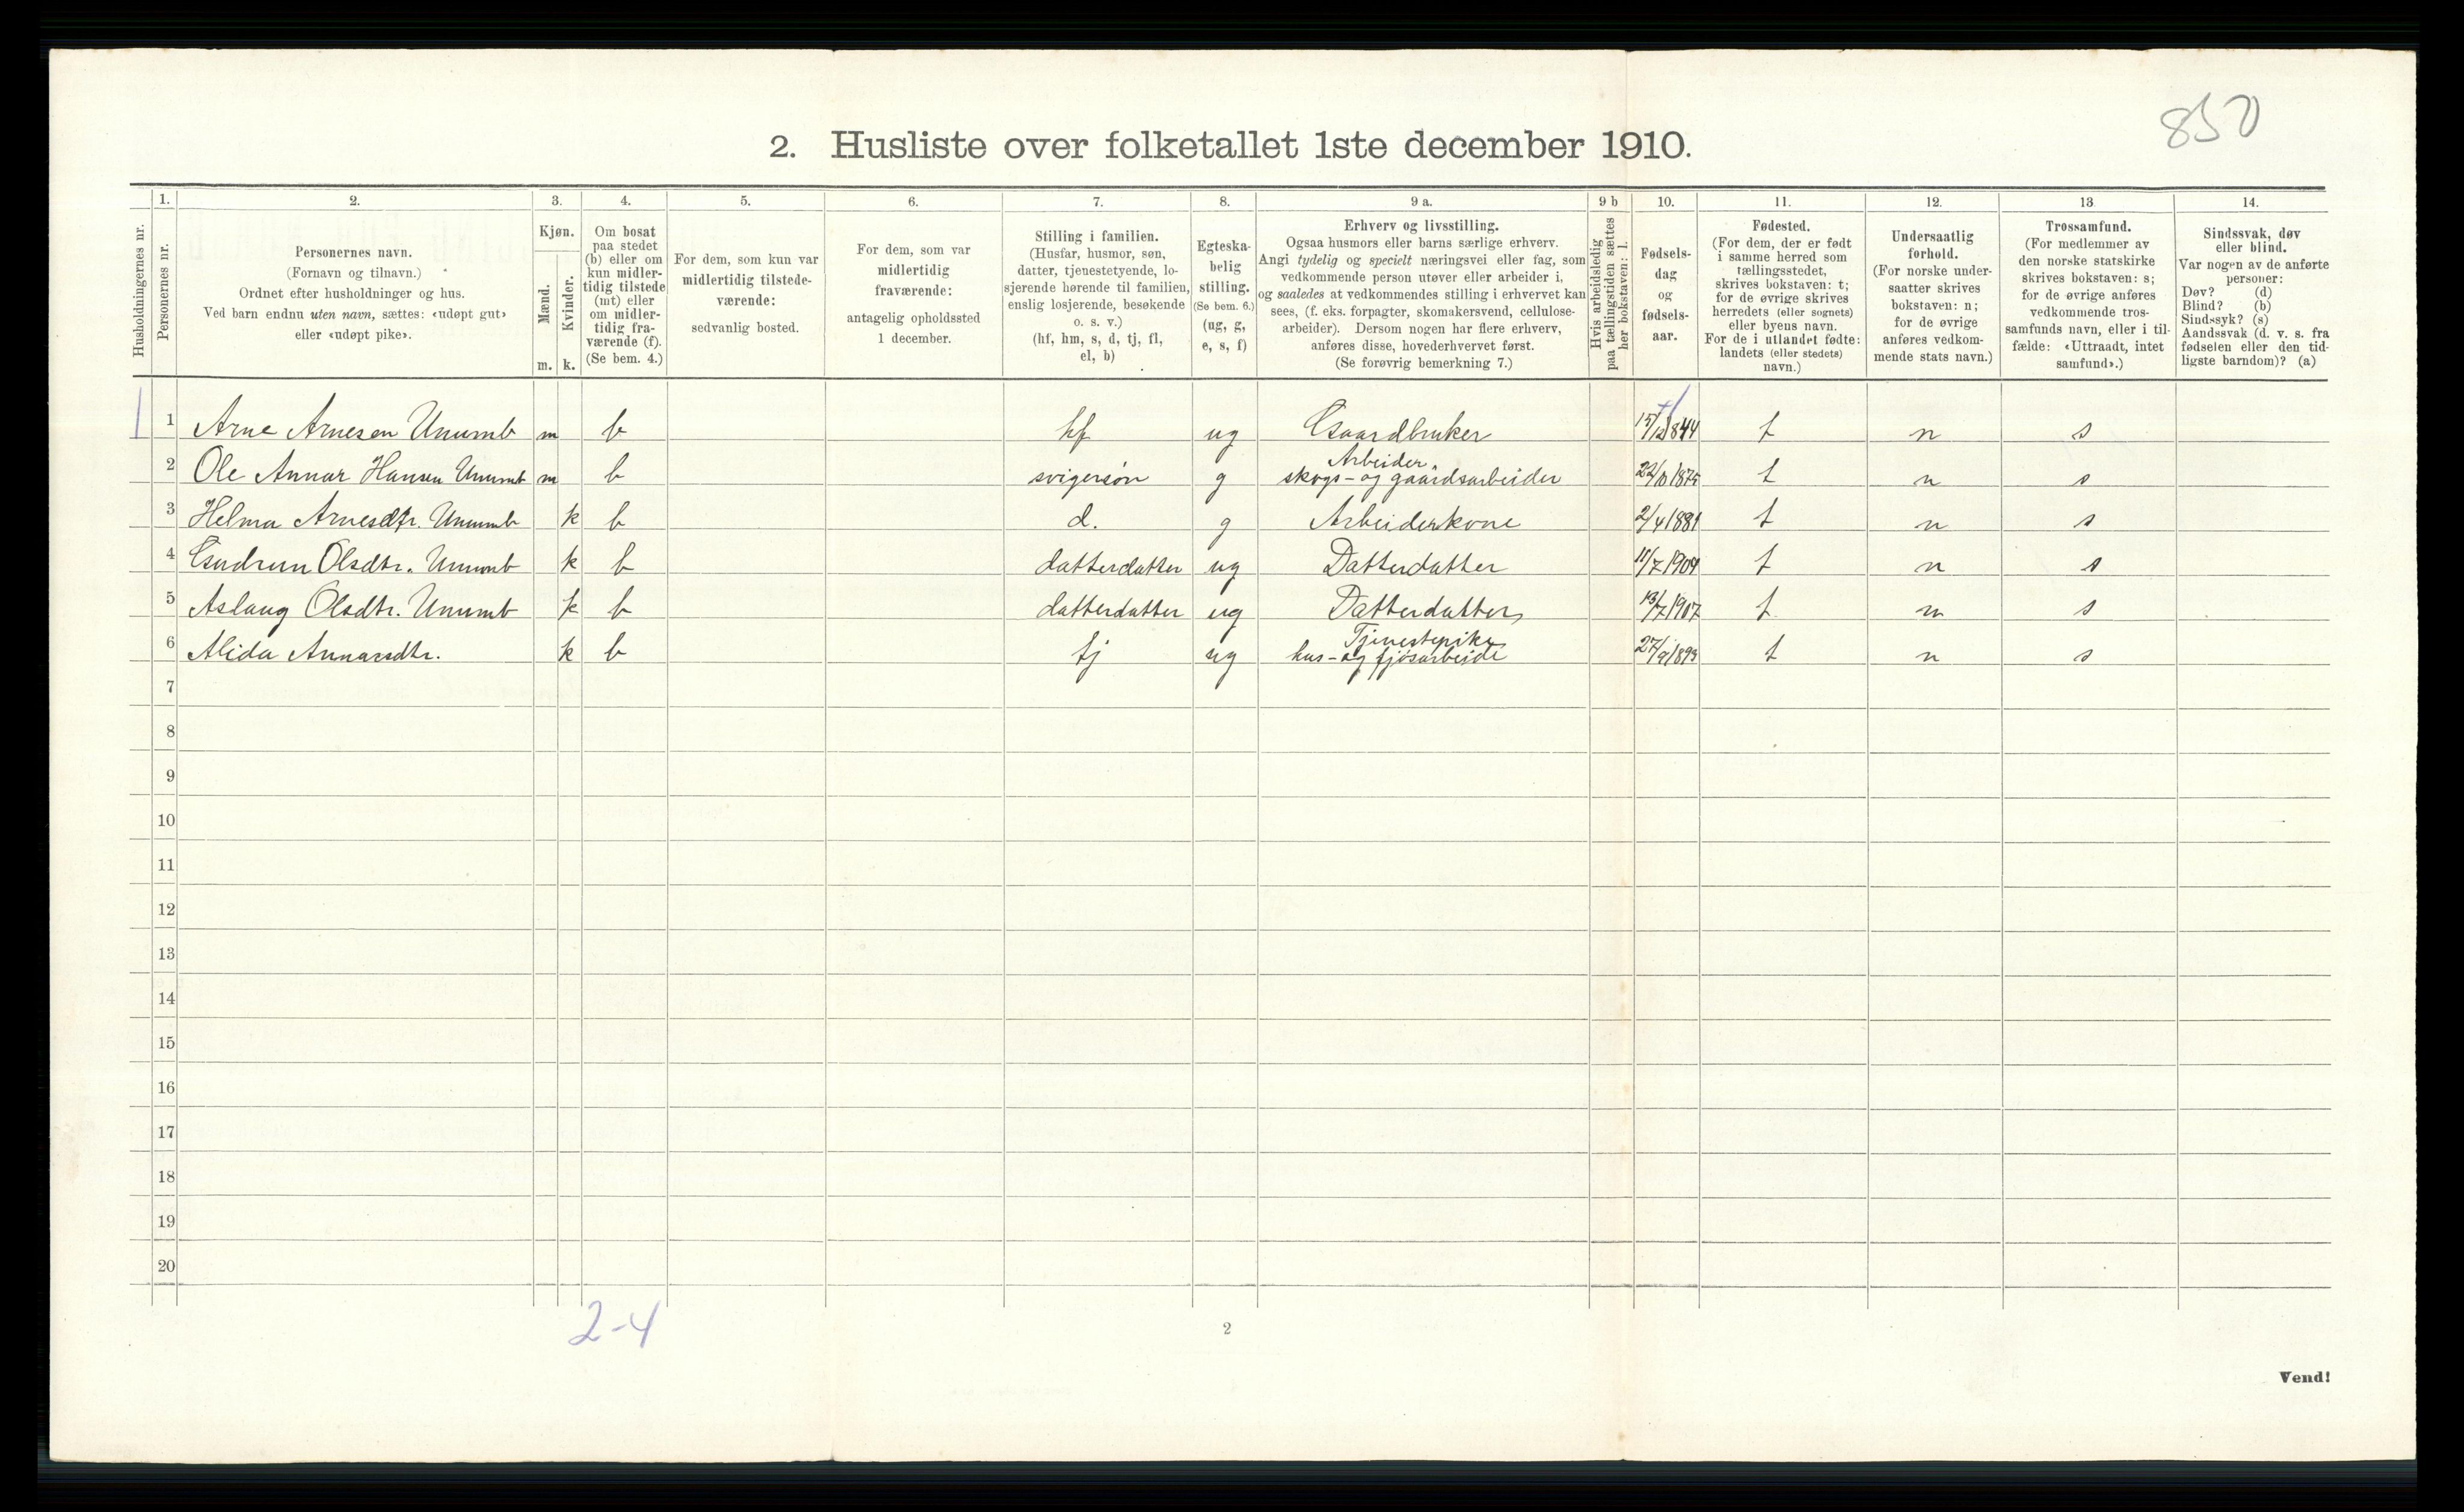 850
2. Husliste over folketallet 1ste december 1910.
Husholdningernes nr.
1.
Personernes nr.
2.
Personernes navn.
(Fornavn og tilnavn.)
Ordnet efter husholdninger og hus.
Ved barn endnu uten navn, sættes: «udøpt gut»
eller «udøpt pike».
3.
Kjøn.
Mænd.
Kvinder.
m. k.
4.
Om bosat
paa stedet
(b) eller om
kun midler-
tidig tilstede
(mt) eller
om midler-
tidig fra-
værende (f).
(Se bem. 4.)
5.
For dem, som kun var
midlertidig tilstede-
værende:
sedvanlig bosted.
6.
For dem, som var
midlertidig
fraværende:
antagelig opholdssted
1 december.
7.
Stilling i familien.
(Husfar, husmor, søn,
datter, tjenestetyende, lo-
sjerende hørende til familien,
enslig losjerende, besøkende
o. s. v.)
(hf, hm, s, d, tj, fl,
el, b)
8.
Egteska-
belig
stilling.
(Se bem. 6.)
(ug, g,
e, s, f)
9 a.
Erhverv og livsstilling.
Ogsaa husmors eller barns særlige erhverv.
Angi tydelig og specielt næringsvei eller fag, som
vedkommende person utøver eller arbeider i,
og saaledes at vedkommendes stilling i erhvervet kan
sees, (f. eks. forpagter, skomakersvend, cellulose-
arbeider). Dersom nogen har flere erhverv,
anføres disse, hovederhvervet først.
(Se forøvrig bemerkning 7.)
9 b
Hvis arbeidsledig
paa tællingstiden sættes
her bokstaven: l.
10.
Fødsels-
dag
og
fødsels-
aar.
11.
Fødested.
(For dem, der er født
i samme herred som
tællingsstedet,
skrives bokstaven: t;
for de øvrige skrives
herredets (eller sognets)
eller byens navn.
For de i utlandet fødte:
landets (eller stedets)
navn.)
12.
Undersaatlig
forhold.
(For norske under-
saatter skrives
bokstaven: n;
for de øvrige
anføres vedkom-
mende stats navn.)
13
Trossamfund.
(For medlemmer av
den norske statskirke
skrives bokstaven: s;
for de øvrige anføres
vedkommende tros-
samfunds navn, eller i til-
fælde: «Uttraadt, intet
samfund».)
14.
Sindssvak, døv
eller blind.
Var nogen av de anførte
personer:
Døv? (d)
Blind? (b)
Sindssyk? (s)
Aandssvak (d. v. s. fra
fødselen eller den tid-
ligste barndom)? (a)
1 1 Arne Arnesen Unumb m b hf ug Gaardbruker 15/12 1844 t n s
Arbeider,
2 Ole Annar Hansen Unumb m b svigersøn g skogs- og gaardsarbeider 22/10 1875 t n s
3 Helma Arnesdtr. Unumb k b d. g Arbeiderkone 2/4 1881 t n s
4 Gudrun Olsdtr. Unumb k b datterdatter ug Datterdatter 11/7 1904 t n s
5 Aslaug Olsdtr. Unumb k b datterdatter ug Datterdatter 13/7 1907 t n s
Tjenestepike
6 Alida Annarsdtr. k b tj ug hus- og fjøsarbeide 27/9 1893 t n s
7
8
9
10
11
12
13
14
15
16
17
18
19
20
2-4
2
Vend!